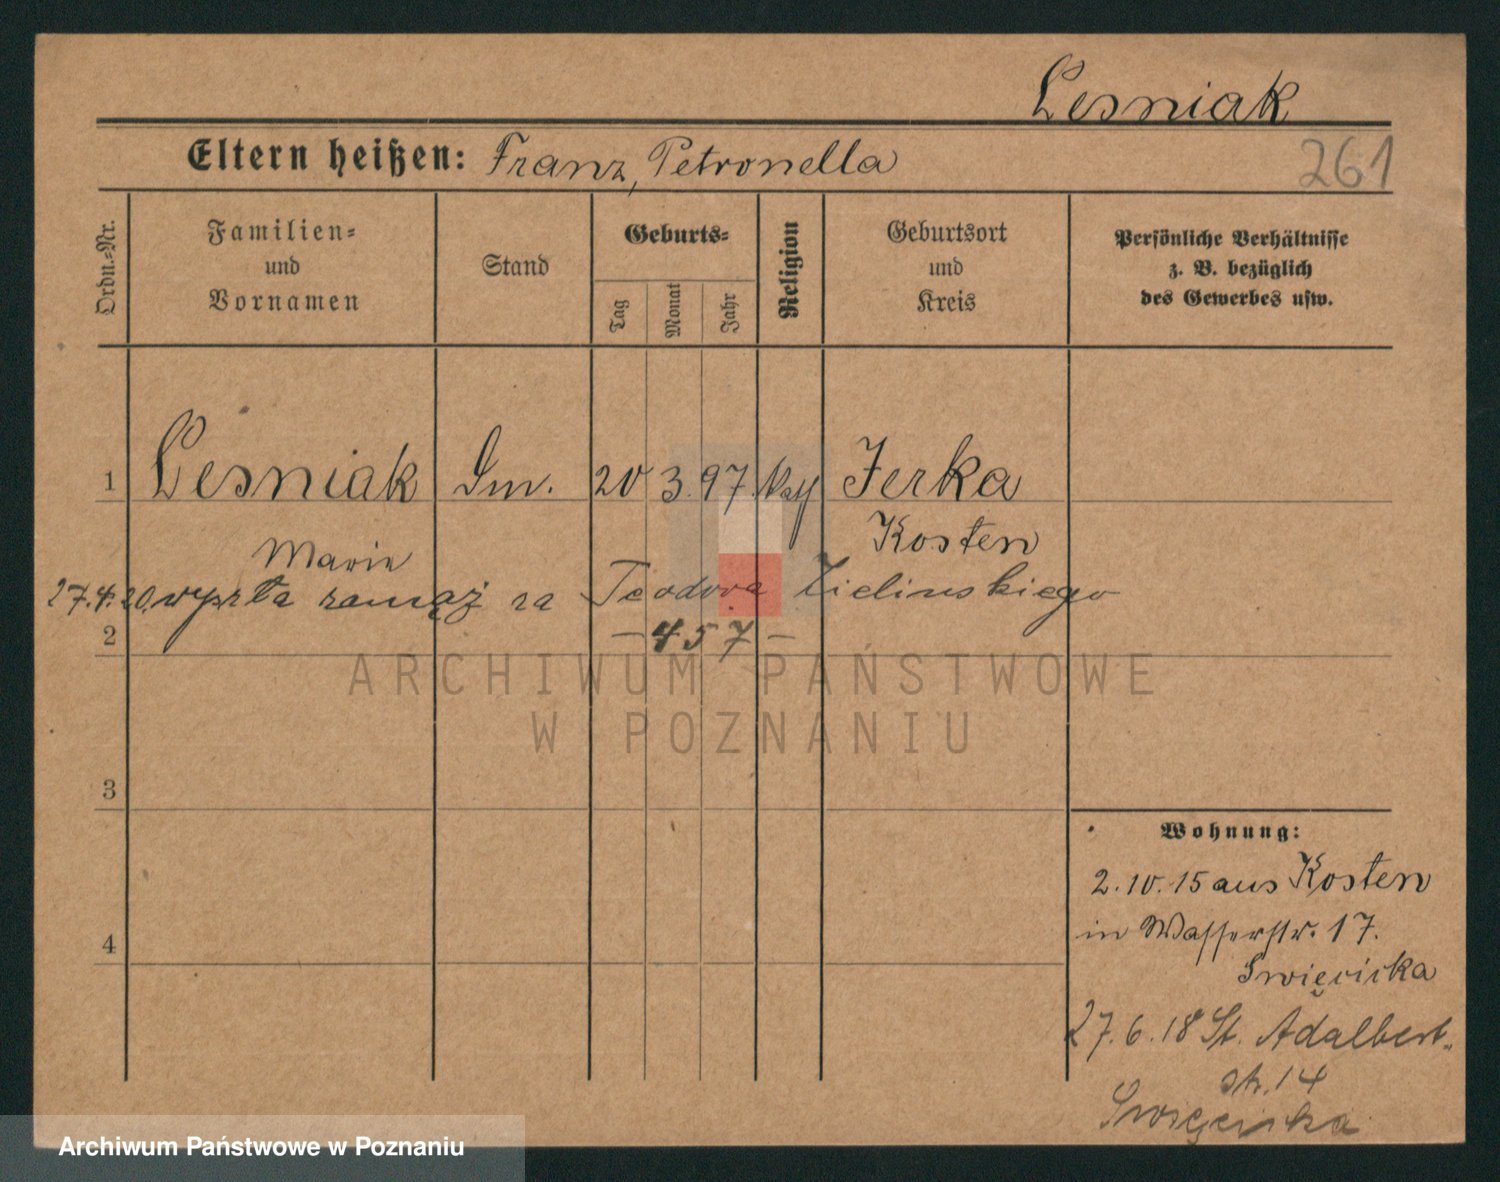 Lesniak
Eltern heißen: Franz, Petronella
261
Ordn.-Nr.
Familien-
und
Vornamen
Stand
Geburts-
Tag
Monat
Jahr
Religion
Geburtsort
und
Kreis
Persönliche Verhältnisse
z. B. bezüglich
des Gewerbes usw.
1 Lesniak 20 3. 97. kath Jerka
Marie Kosten
27.4.20. wyszła zamąż za Teodora Zielinskiego
2 – 457 –
ARCHIWUM PAŃSTWOWE
W POZNANIU
3
4
Wohnung:
2.10.15 aus Kosten
in Wasserstr. 17.
Swięcicka
27.6.18 St. Adalbert-
str. 14
Swięcicka
Archiwum Państwowe w Poznaniu